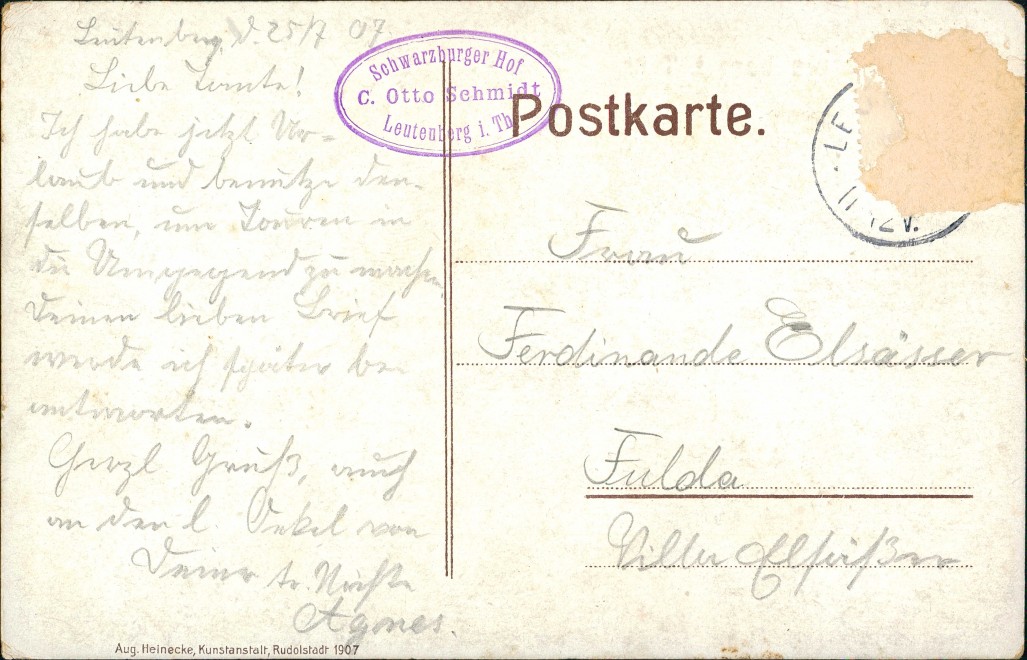 Leutenberg, d. 25/7 07.
Liebe Tante!
Ich habe jetzt Ur-
laub und benutze den-
selben, um Touren in
die Umgegend zu machen.
Deinen lieben Brief
werde ich später be-
antworten.
Herzl Gruß, auch
an den l. Onkel von
Deiner tr. Nichte
Agnes.
Schwarzburger Hof
C. Otto Schmidt
Leutenberg i. Th.
Postkarte.
LE
11-12 V.
Frau
Ferdinande Elsässer
Fulda
Villa Elsäßer
Aug. Heinecke, Kunstanstalt, Rudolstadt 1907